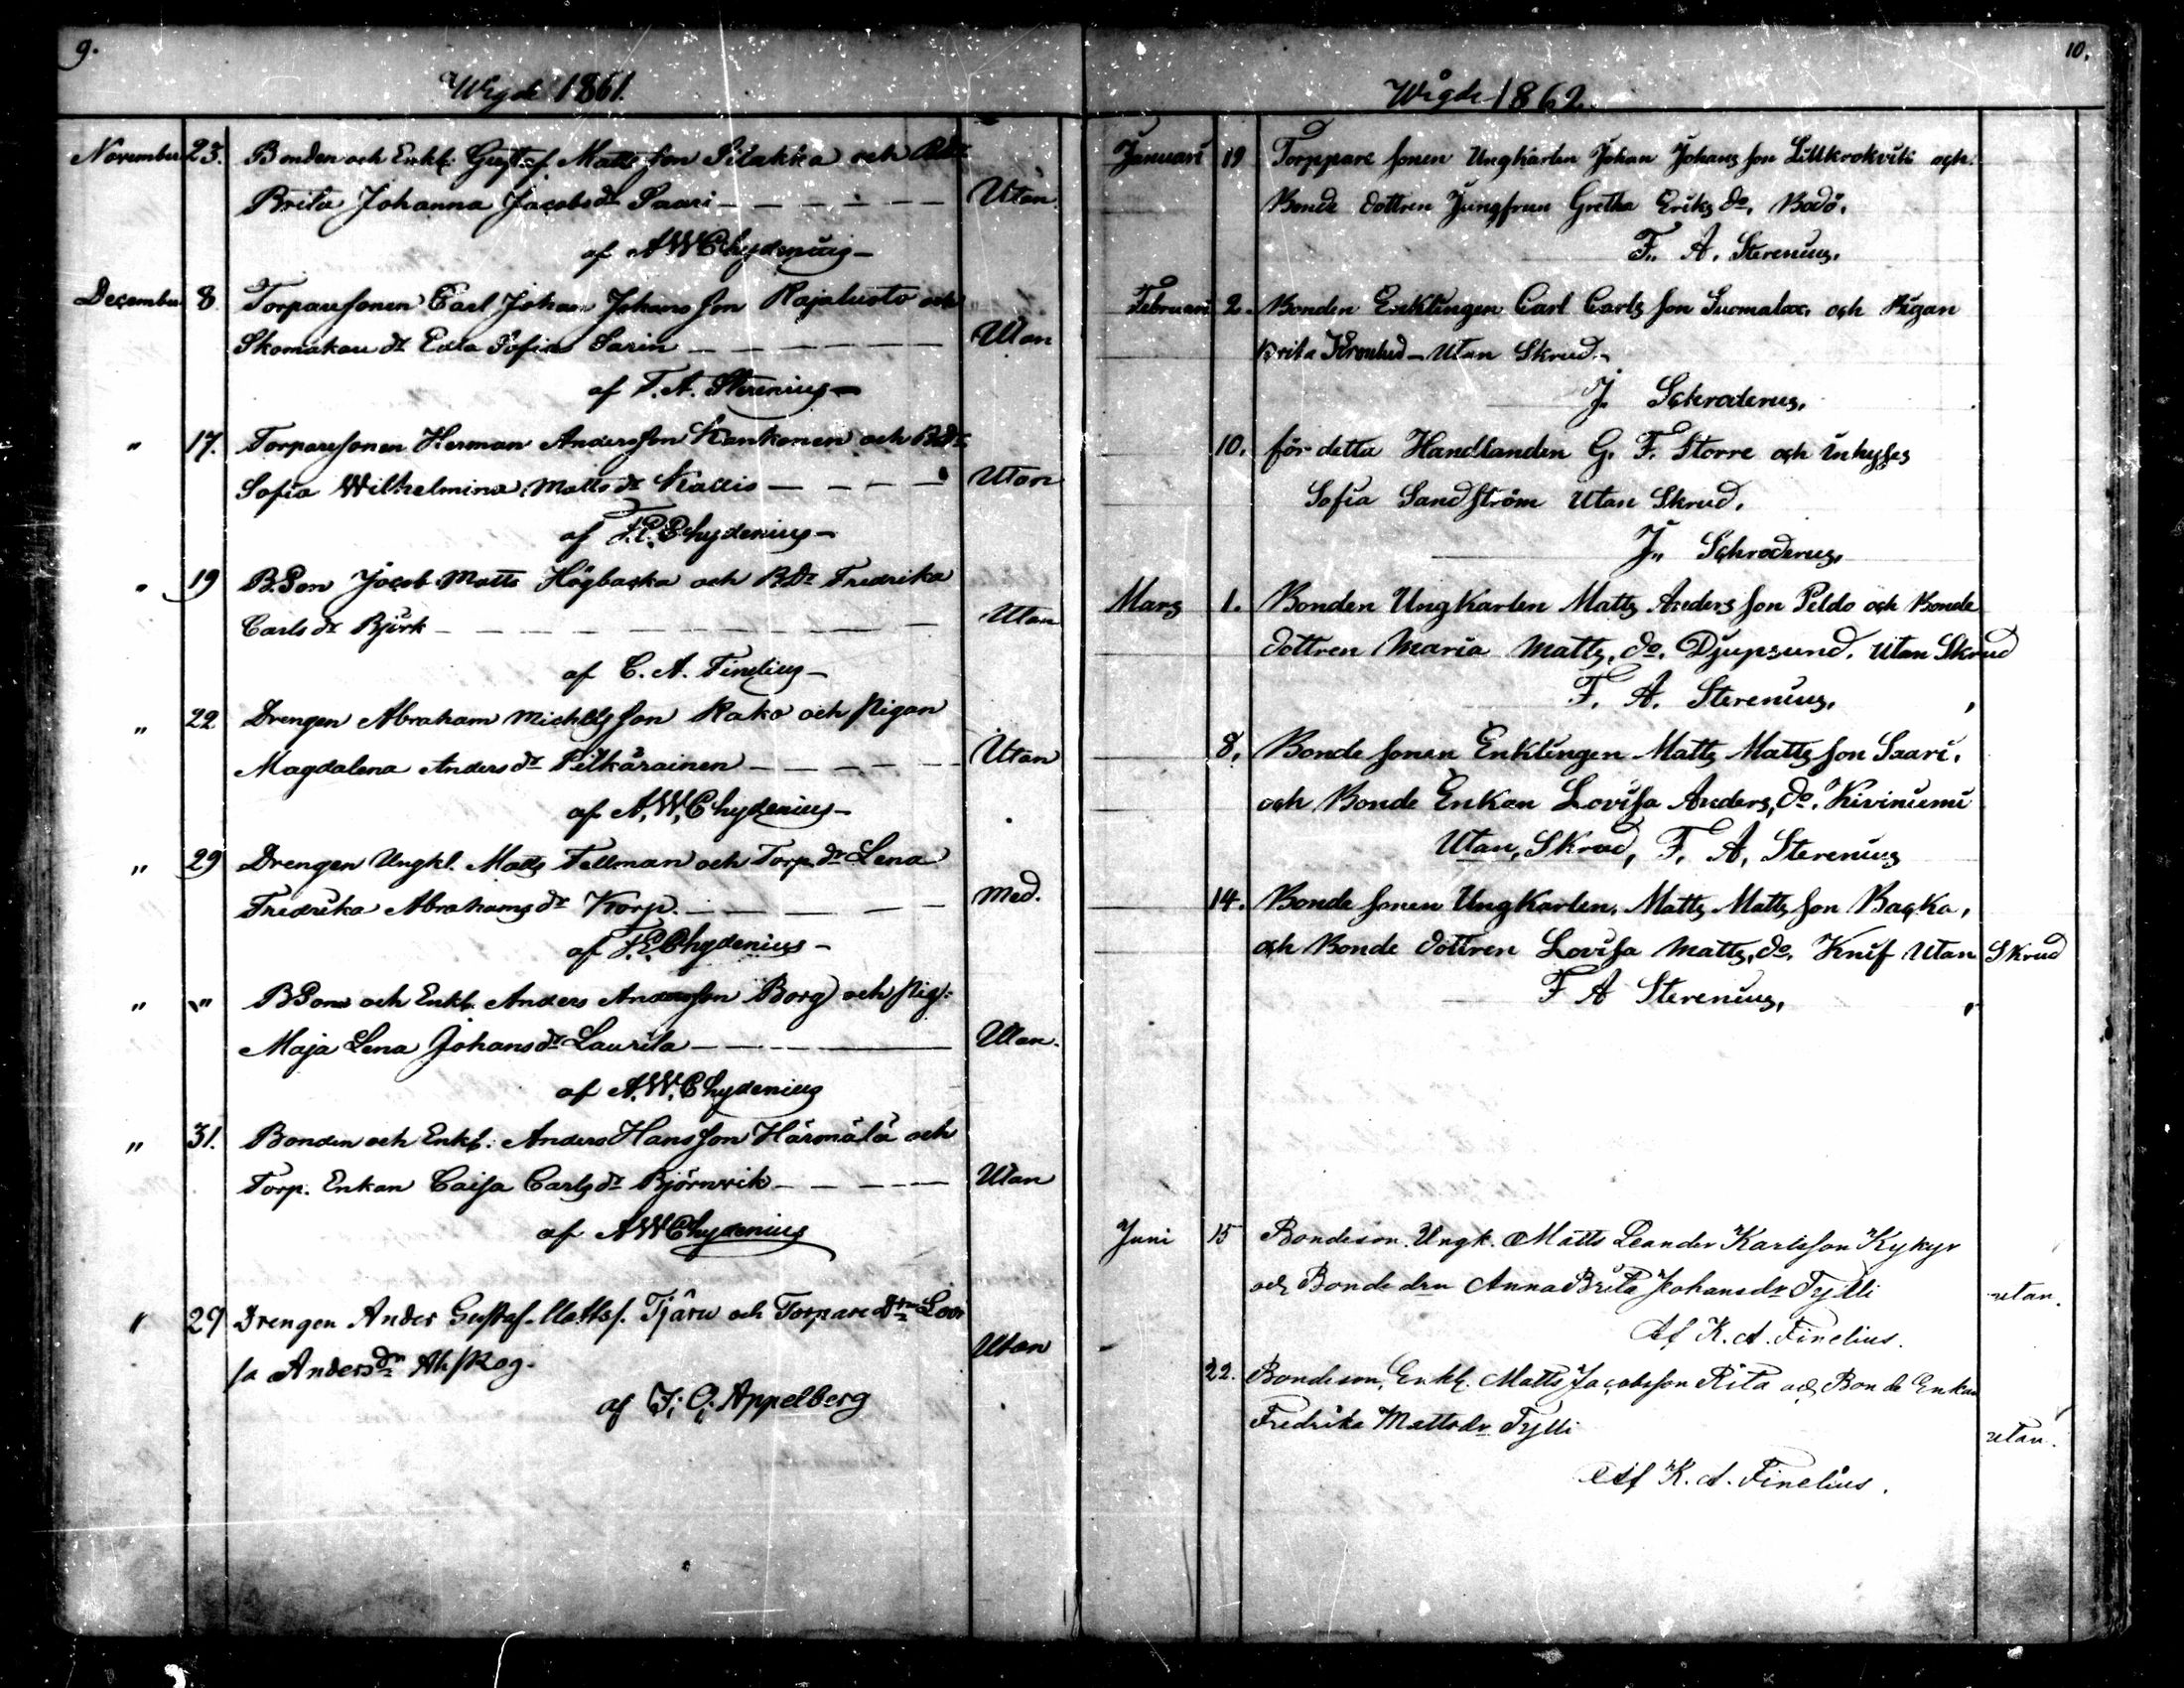 9.
Wigde 1861.
November 23. Bonden och Enkl: Gustaf Matts son Silakka och Bdr
Brita Johanna Jacobs dr Saari — Utan
af A W Chydenius —
December 8 Torparesonen Carl Johan Johans son Rajaluoto och
Skomakare dr Edla Sofia Sarin — Utan
af F. A. Sterenius —
" 17. Torparesonen Herman Andersson Kankonen och Bdr
Sofia Wilhelmina Matts dr Kallis — Utan
af F. E. Chydenius —
" 19 B.Son Jacob Matts Högbacka och B.Dr Fredrika
Carls dr Björk — Utan
af C. A. Finelius —
" 22 Drengen Abraham Michels son Kako och Pigan
Magdalena Anders dr Pilkärainen — Utan
af A. W. Chydenius —
" 29 Drengen Ungkl. Matts Fellman och Torp. dr Lena
Fredrika Abrahams dr Korp. — Med.
af F. E. Chydenius —
" " BSon och Enkl. Anders Andersson Borg och Pig:
Maja Lena Johans dr Laurila — Utan.
af A. W. Chydenius
" 31. Bonden och Enkl: Anders Hansson Härmälä och
Torp. Enkan Caisa Carls dr Björnvik — Utan
af A W Chydenius
" 29 Drengen Ander Gustaf Mattss. Tjäru och Torpare Dtrn Lovi
sa Anders dr Ahskog. Utan
af F. O. Appelberg
10.
Wigde 1862.
Januari 19 Torppare sonen Ungkarlen Johan Johans son Lillkrokvik och
Bonde dottren Jungfrun Gretha Eriks do. Bodö.
F. A. Sterenius.
Februari 2. Bonden Enklingen Carl Carls son Suomalax, och Pigan
Brita Kronlund — Utan Skrud.
J. Schroderus.
10. för detta Handlanden G. F. Storre och inhyses
Sofia Sandström Utan Skrud.
J. Schroderus.
Mars 1. Bonden Ungkarlen Matts Anders son Peldo och Bonde
dottren Maria Matts. do. Djupsund. Utan Skrud
F. A. Sterenius.
8. Bonde sonen Enklingen Matts Matts son Saari.
och Bonde Enkan Lovisa Anders, do. Kiviniemi
Utan, Skrud, F. A. Sterenius
14. Bonde sonen Ungkarlen, Matts Matts son Backa,
och Bonde dottren Lovisa Matts, do. Knif Utan Skrud
F A Sterenius.
Juni 15 Bondeson. Ungk. Matts Leander Karlsson Kykyr
och Bonde drn Anna Brita Johansdr Tylli utan.
Af K. A. Finelius.
22. Bondeson, Enkl. Matts Jacobsson Rita och Bonde Enkan
Fredrika Mattsdr Tylli utan.
Af K. A. Finelius.